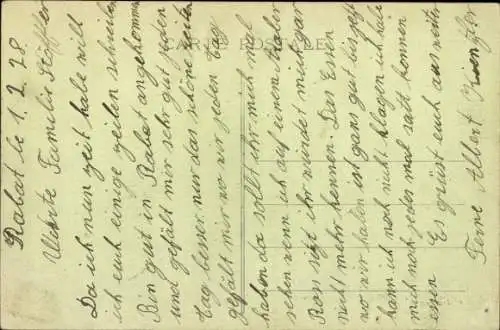 CARTE POSTALE
Rabat le 1. 2. 28
Werte Familie Stöffler
Da ich nun zeit habe will
ich euch einige zeilen schreiben
Bin gut in Rabat angekommen
und gefält mir sehr gut jeden
Tag besser nur das schöne reiten
gefält mir wo wir jeden Tag
haben da sollt ihr mich mal
sehen wenn ich auf einem Araber
Ross sizt ihr würdet mich gar
nicht mehr kennen. Das Essen
wo wir haben ist gans gut bis jezt
kann ich noch nicht klagen ich habe
mich noch jedes mal satt können
essen Es grüst euch aus weiter
Ferne Albert